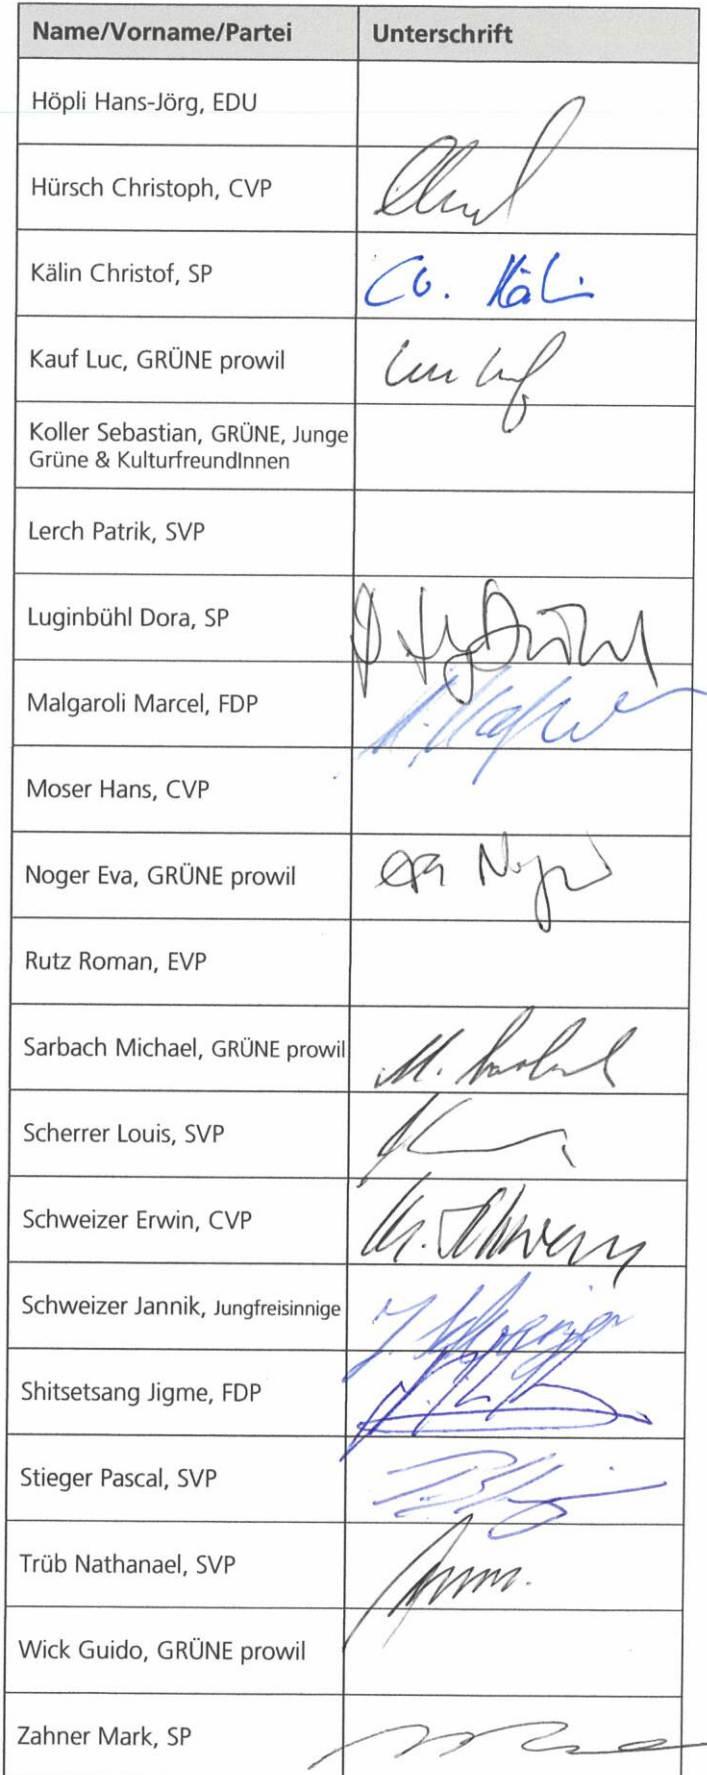 Name/Vorname/Partei Unterschrift
Höpli Hans-Jörg, EDU
Hürsch Christoph, CVP
Kälin Christof, SP Ch. Käli
Kauf Luc, GRÜNE prowil
Koller Sebastian, GRÜNE, Junge
Grüne & KulturfreundInnen
Lerch Patrik, SVP
Luginbühl Dora, SP
Malgaroli Marcel, FDP
Moser Hans, CVP
Noger Eva, GRÜNE prowil
Rutz Roman, EVP
Sarbach Michael, GRÜNE prowil
Scherrer Louis, SVP
Schweizer Erwin, CVP
Schweizer Jannik, Jungfreisinnige
Shitsetsang Jigme, FDP
Stieger Pascal, SVP
Trüb Nathanael, SVP
Wick Guido, GRÜNE prowil
Zahner Mark, SP